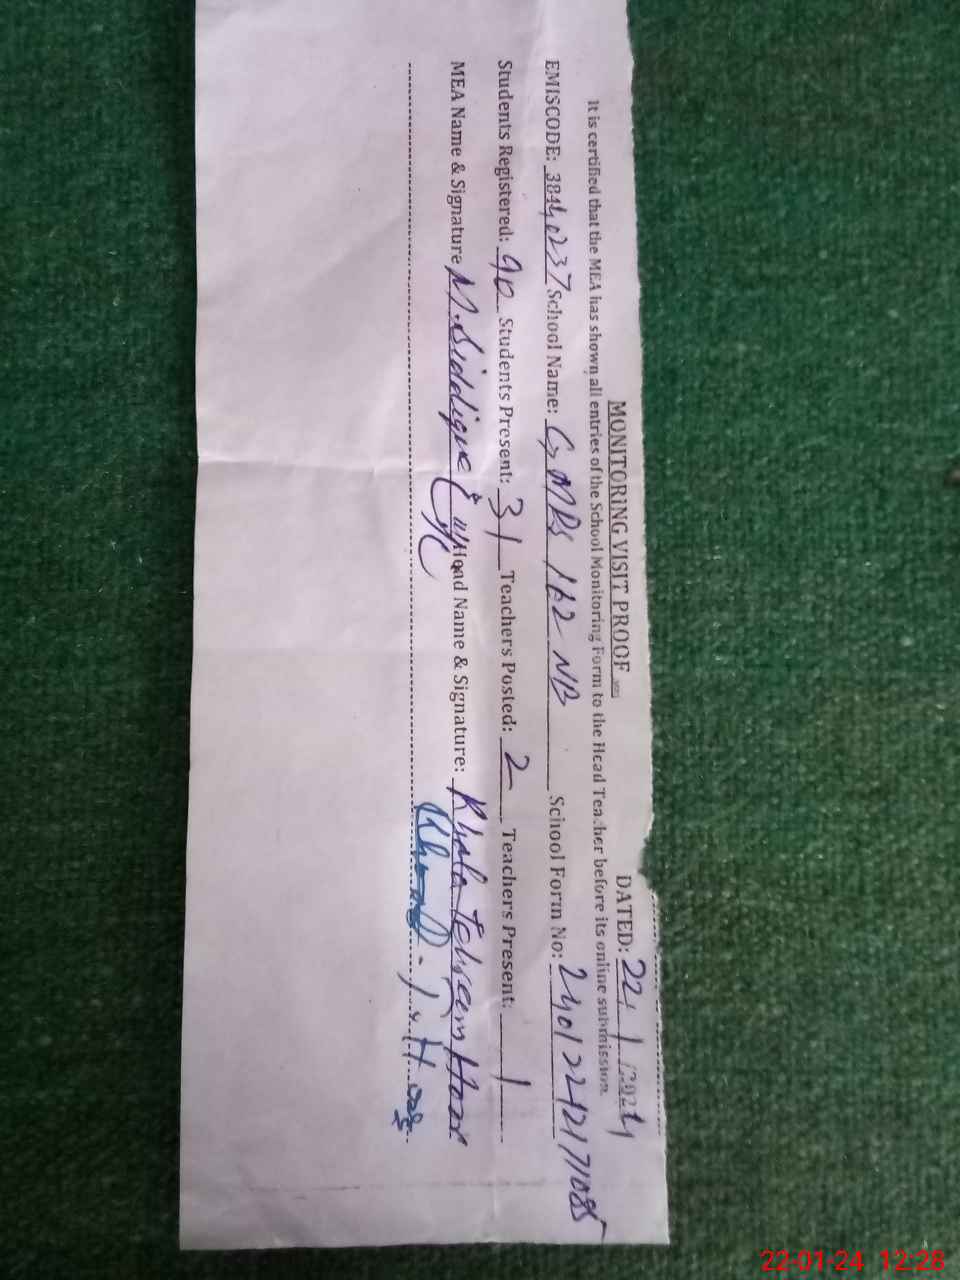 MONITORING VISIT PROOF
DATED: 22/1/2024
It is certified that the MEA has shown all entries of the School Monitoring Form to the Head Teacher before its online submission.
EMISCODE: 38440237 School Name: GMPS 162 NB School Form No: 2401224121711085
Students Registered: 90 Students Present: 31 Teachers Posted: 2 Teachers Present: 1
MEA Name & Signature M. Siddique Head Name & Signature:
22-01-24 12:28